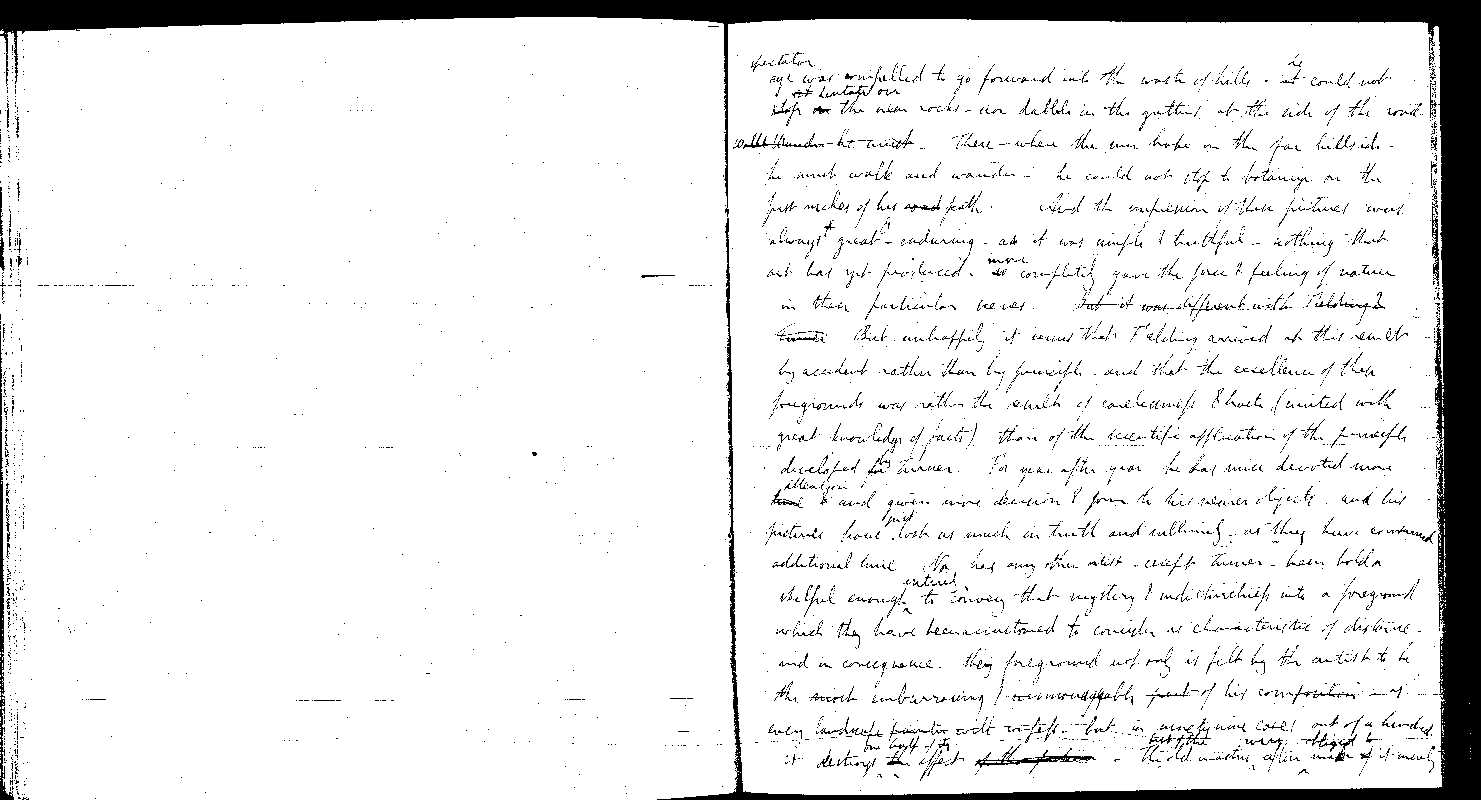 spectator
eye was compelled to go forward into the waste of hills - he it could not
stop on the near rocks - nor dabble in the gutters at the side of the road
walk & wander he must. There - where the sun broke on the far hillside -
he must walk and wander - he could not stop to botanize on the
first inches of his road path. And the impression of these pictures was
always great & enduring - as it was simple & truthful - nothing that
art has yet produced - more so completely gave the force & feeling of nature
in these particular scenes. But it was different with Fielding &
Turner But unhappily it seems that Fielding arrived at this result
by accident rather than by principle - and that the excellence of these
foregrounds was rather the result of carelessness & haste (united with
great knowledge of facts) than of the scientific application of the principle
developed by Turner. For year after year he has since devoted more
attention
time & and given more decision & form to his nearer objects. and his
pictures have just lost as much in truth and sublimity as they have consumed
additional time Nor has any other artist - except Turner - been bold or
skilful enough entirely to convey that mystery & indistinctness into a foreground
which they have been accustomed to consider as characteristic of distance -
and in consequence. their foreground not only is felt by the artist to be
the most embarrassing & unmanageable part of his composition - as
every landscape painter will confess - but in ninety nine cases out of a hundred
one half of the
it destroys the effect of the picture - the old masters